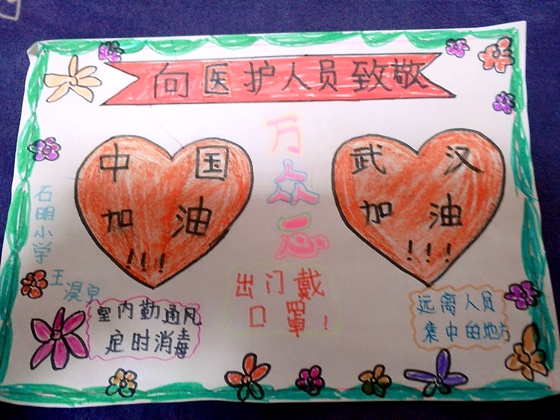 向医护人员致敬
中国
加油
!!!
万
众
武汉
加油
!!!
石明小学
王
出门戴
口罩!
室内勤通风
定时消毒
远离人员
集中的地方